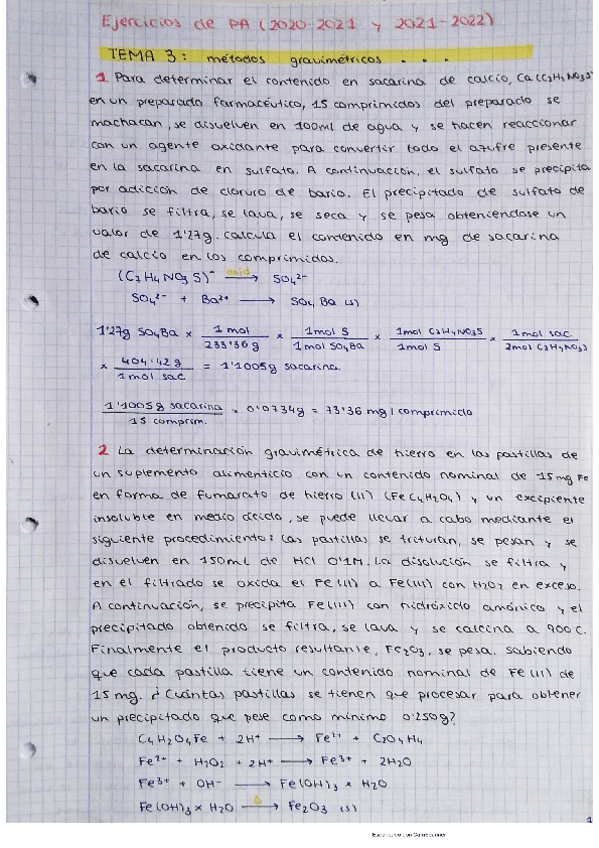 Ejercicios de PA (2020-2021 y 2021-2022)
TEMA 3: métodos gravimétricos . . .
1 Para determinar el contenido en sacarina de calcio, Ca(C7H4NO3S)
en un preparado farmacéutico, 15 comprimidos del preparado se
machacan, se disuelven en 100ml de agua y se hacen reaccionar
con un agente oxidante para convertir todo el azufre presente
en la sacarina en sulfato. A continuación, el sulfato se precipita
por adición de cloruro de bario. El precipitado de sulfato de
bario se filtra, se lava, se seca y se pesa obteniendose un
valor de 1'27g. calcula el contenido en mg de sacarina
de calcio en los comprimidos.
(C7H4NO3S)⁻ oxid → SO4²⁻
SO4²⁻ + Ba²⁺ → SO4Ba (s)
1'27g SO4Ba × 1 mol / 233'36 g × 1 mol S / 1 mol SO4Ba × 1 mol C7H4NO3S / 1 mol S × 1 mol sac. / 2mol C7H4NO3S
× 404'42 g / 1 mol sac = 1'1005g sacarina
1'1005g sacarina / 15 comprim. = 0'0734g = 73'36 mg / comprimido
2 La determinación gravimétrica de hierro en las pastillas de
un suplemento alimenticio con un contenido nominal de 15 mg Fe
en forma de fumarato de hierro (II) (FeC4H2O4) y un excipiente
insoluble en medio ácido, se puede llevar a cabo mediante el
siguiente procedimiento: Las pastillas se trituran, se pesan y se
disuelven en 150ml de HCl 0'1M. La disolución se filtra y
en el filtrado se oxida el Fe(II) a Fe(III) con H2O2 en exceso.
A continuación, se precipita Fe(III) con hidróxido amónico y el
precipitado obtenido se filtra, se lava y se calcina a 900 C.
Finalmente el producto resultante, Fe2O3, se pesa. sabiendo
que cada pastilla tiene un contenido nominal de Fe(II) de
15 mg. ¿Cuántas pastillas se tienen que procesar para obtener
un precipitado que pese como mínimo 0'250g?
C4H2O4Fe + 2H⁺ → Fe²⁺ + C2O4H4
Fe²⁺ + H2O2 + 2H⁺ → Fe³⁺ + 2H2O
Fe³⁺ + OH⁻ → Fe(OH)3 × H2O
Fe(OH)3 × H2O Δ → Fe2O3 (s)
1